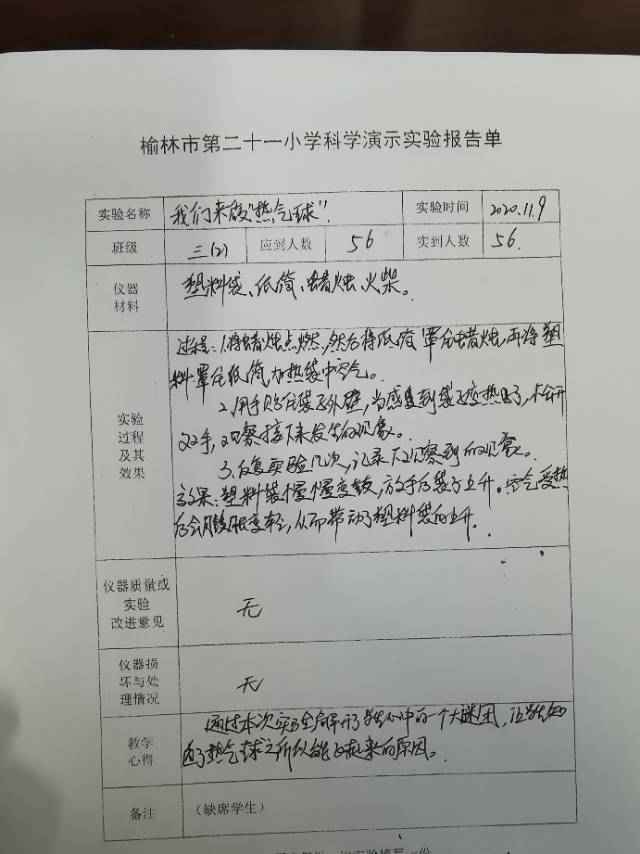 榆林市第二十一小学科学演示实验报告单
实验名称 我们来做"热气球". 实验时间 2020.11.9
班级 三(2) 应到人数 56 实到人数 56.
仪器材料 塑料袋、纸筒、蜡烛、火柴。
实验过程及其效果
过程:1.将蜡烛点燃,然后将纸筒罩住蜡烛,再将塑
料罩住纸筒,加热袋中空气。
2.用手贴住袋子外壁,当感受到袋子变热了,松开
双手,观察接下来发生的现象。
3.反复实验几次,记录下观察到的现象。
效果:塑料袋慢慢变鼓,放手后袋子上升。空气受热
后会膨胀变轻,从而带动了塑料袋的上升.
仪器质量或
实验
改进意见 无
仪器损
坏与处
理情况 无
教学心得
通过本次实验解开了学生心中的一个大谜团,让学生知
道了热气球之所以能飞起来的原因。
备注 (缺席学生)